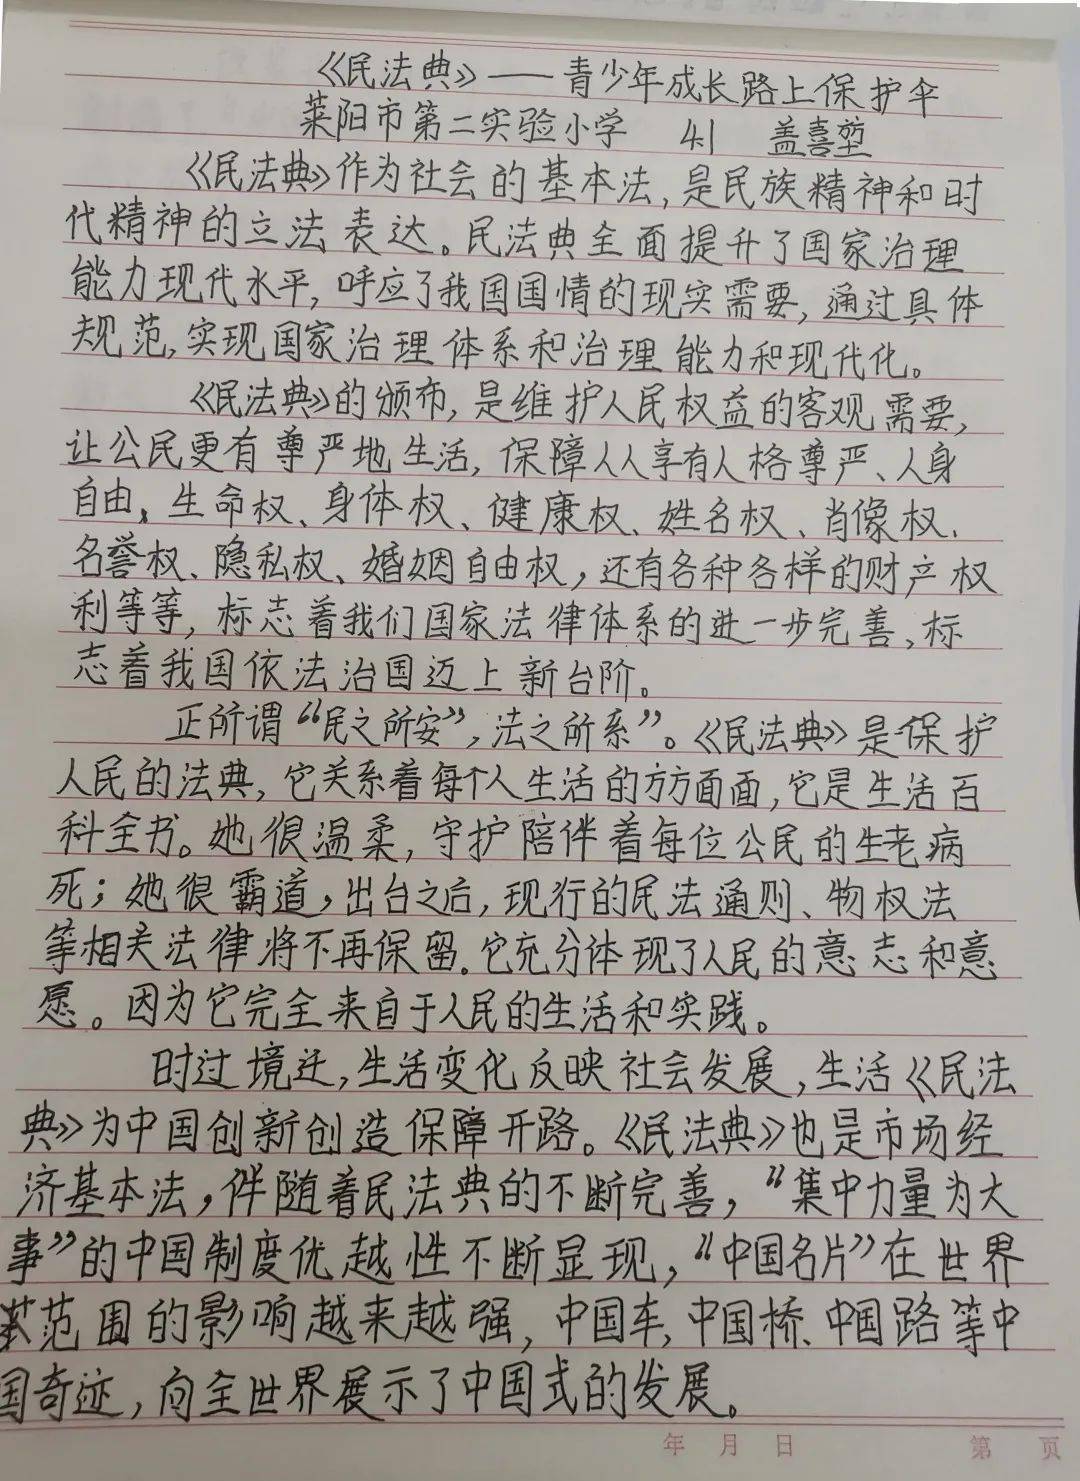 《民法典》——青少年成长路上保护伞
莱阳市第二实验小学 4.1 盖喜堃
《民法典》作为社会的基本法,是民族精神和时
代精神的立法表达。民法典全面提升了国家治理
能力现代水平,呼应了我国国情的现实需要,通过具体
规范,实现国家治理体系和治理能力和现代化。
《民法典》的颁布,是维护人民权益的客观需要,
让公民更有尊严地生活,保障人人享有人格尊严、人身
自由、生命权、身体权、健康权、姓名权、肖像权、
名誉权、隐私权、婚姻自由权,还有各种各样的财产权
利等等,标志着我们国家法律体系的进一步完善、标
志着我国依法治国迈上新台阶。
正所谓“民之所安”,法之所系”。《民法典》是保护
人民的法典,它关系着每个人生活的方方面面,它是生活百
科全书。她很温柔,守护陪伴着每位公民的生老病
死;她很霸道,出台之后,现行的民法通则、物权法
等相关法律将不再保留.它充分体现了人民的意志和意
愿。因为它完全来自于人民的生活和实践。
时过境迁,生活变化反映社会发展,生活《民法
典》为中国创新创造保障开路。《民法典》也是市场经
济基本法,伴随着民法典的不断完善,“集中力量为大
事”的中国制度优越性不断显现,“中国名片”在世界
范围的影响越来越强,中国车,中国桥、中国路等中
国奇迹,向全世界展示了中国式的发展。
年 月 日 第 页